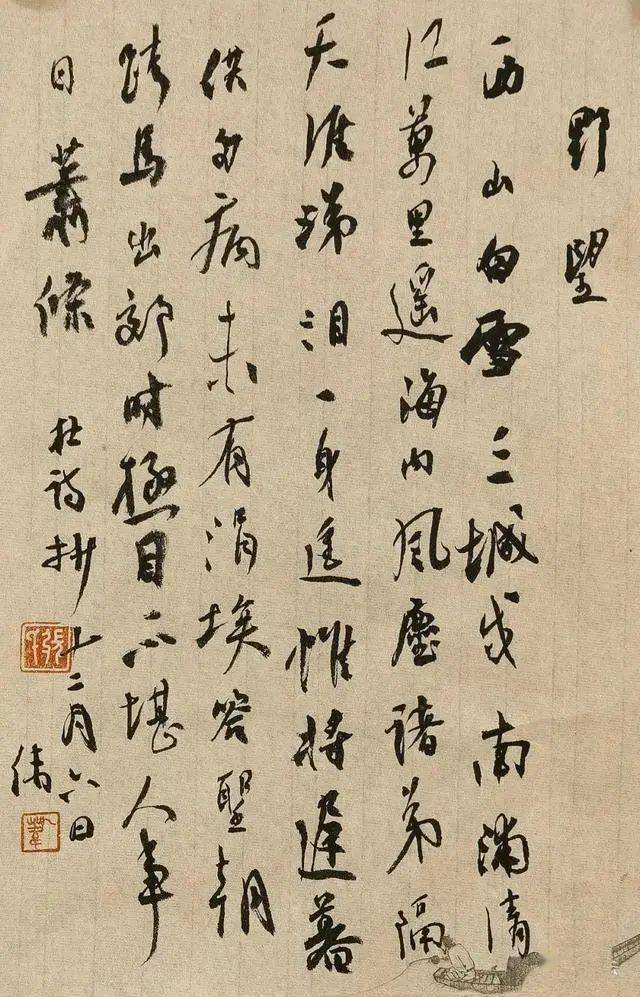 野望
西山白雪三城戍南浦清
江萬里遥海内風塵諸弟隔
天涯涕泪一身遥惟將遲暮
供多病未有涓埃答聖朝
跨馬出郊時極目不堪人事
日蕭條
杜詩抄十二月六日